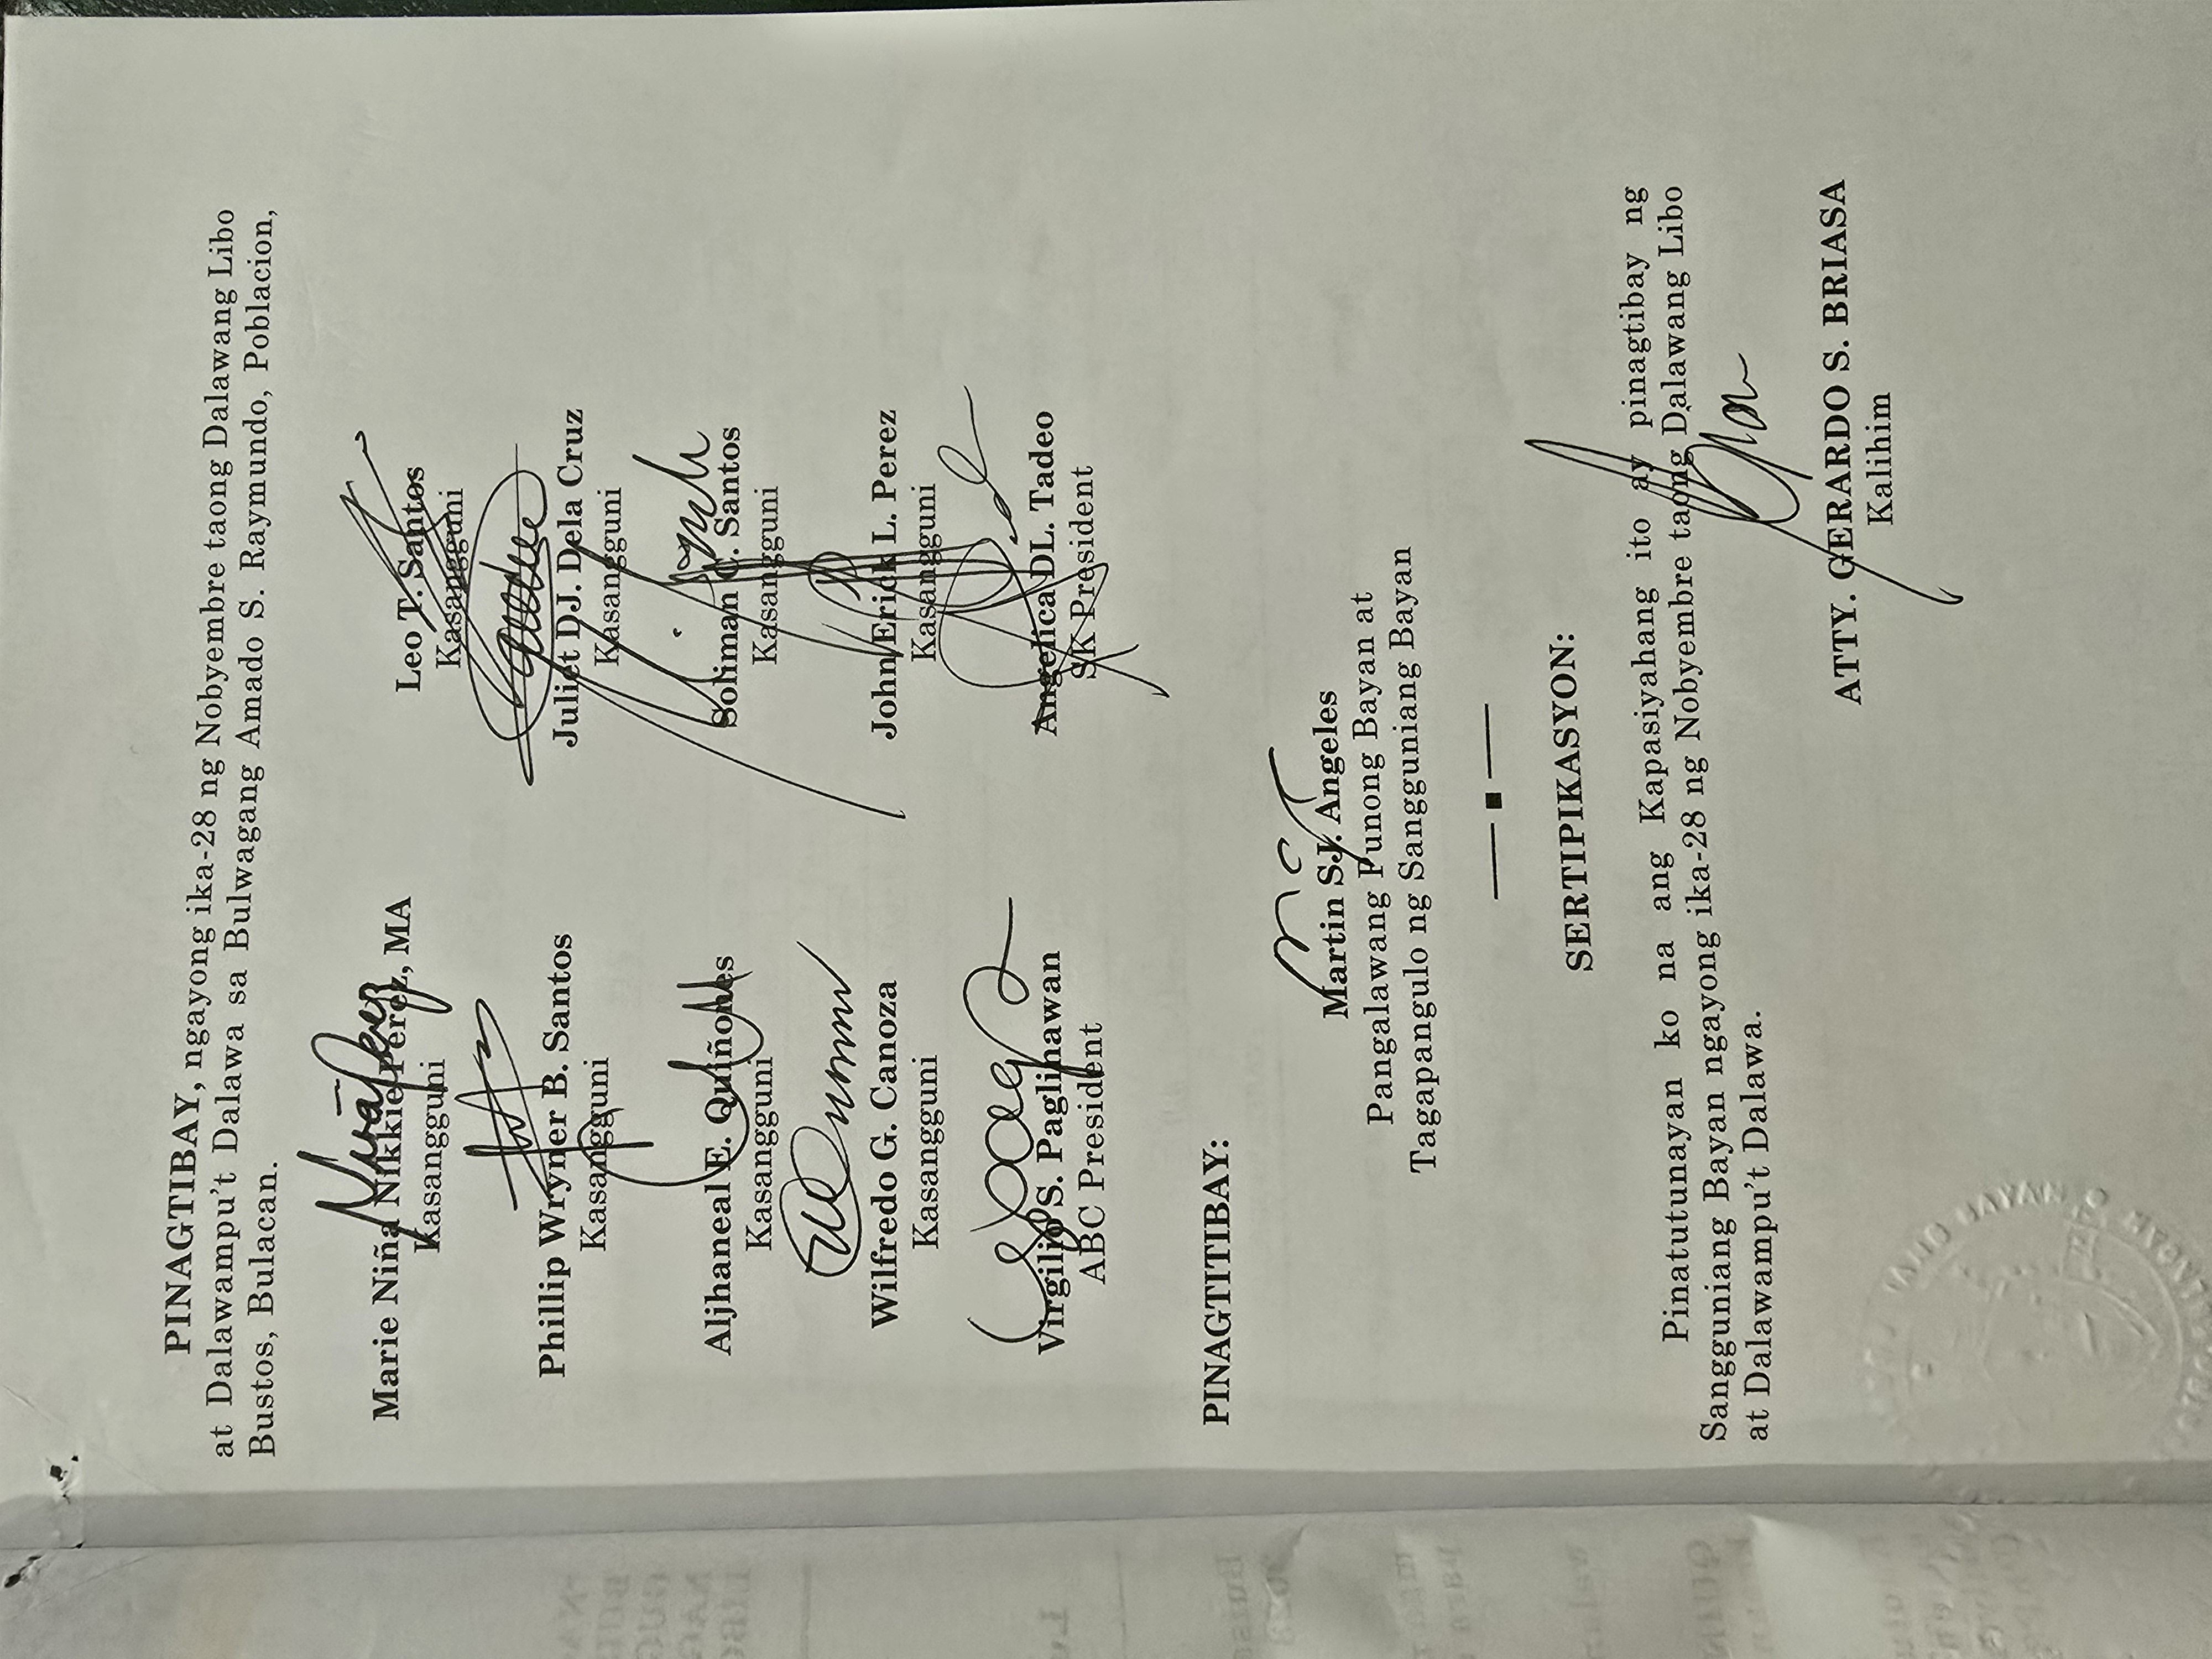 PINAGTIBAY, ngayong ika-28 ng Nobyembre taong Dalawang Libo
at Dalawampu't Dalawa sa Bulwagang Amado S. Raymundo, Poblacion,
Bustos, Bulacan.
Marie Niña Nikkie Perez, MA
Kasangguni
Leo T. Santos
Kasangguni
Phillip Wryner B. Santos
Kasangguni
Juliet DJ. Dela Cruz
Kasangguni
Aljhaneal E. Quiñones
Kasangguni
Soliman C. Santos
Kasangguni
Wilfredo G. Canoza
Kasangguni
John Erick L. Perez
Kasangguni
Virgilio S. Paglinawan
ABC President
Angelica DL. Tadeo
SK President
PINAGTITIBAY:
Martin SJ. Angeles
Pangalawang Punong Bayan at
Tagapangulo ng Sangguniang Bayan
SERTIPIKASYON:
Pinatutunayan ko na ang Kapasiyahang ito ay pinagtibay ng
Sangguniang Bayan ngayong ika-28 ng Nobyembre taong Dalawang Libo
at Dalawampu't Dalawa.
ATTY. GERARDO S. BRIASA
Kalihim